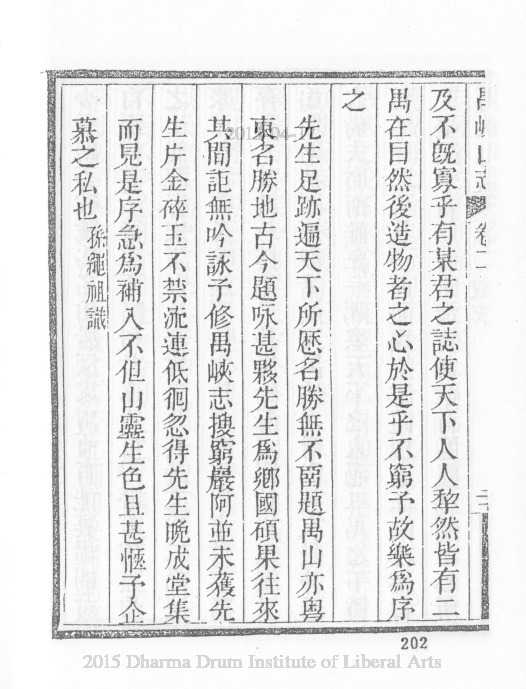 禺峽山志 卷二
及不旣寡乎有某君之誌使天下人人犂然皆有二
禺在目然後造物者之心於是乎不窮予故樂爲序
之
先生足跡遍天下所歷名勝無不畱題禺山亦粤
東名勝地古今題咏甚夥先生爲鄕國碩果往來
其間詎無吟詠予修禺峽志搜窮巖阿並未獲先
生片金碎玉不禁流連低徊忽得先生晚成堂集
而見是序急爲補入不但山靈生色且甚愜予企
慕之私也 孫繩祖識
202
2015 Dharma Drum Institute of Liberal Arts